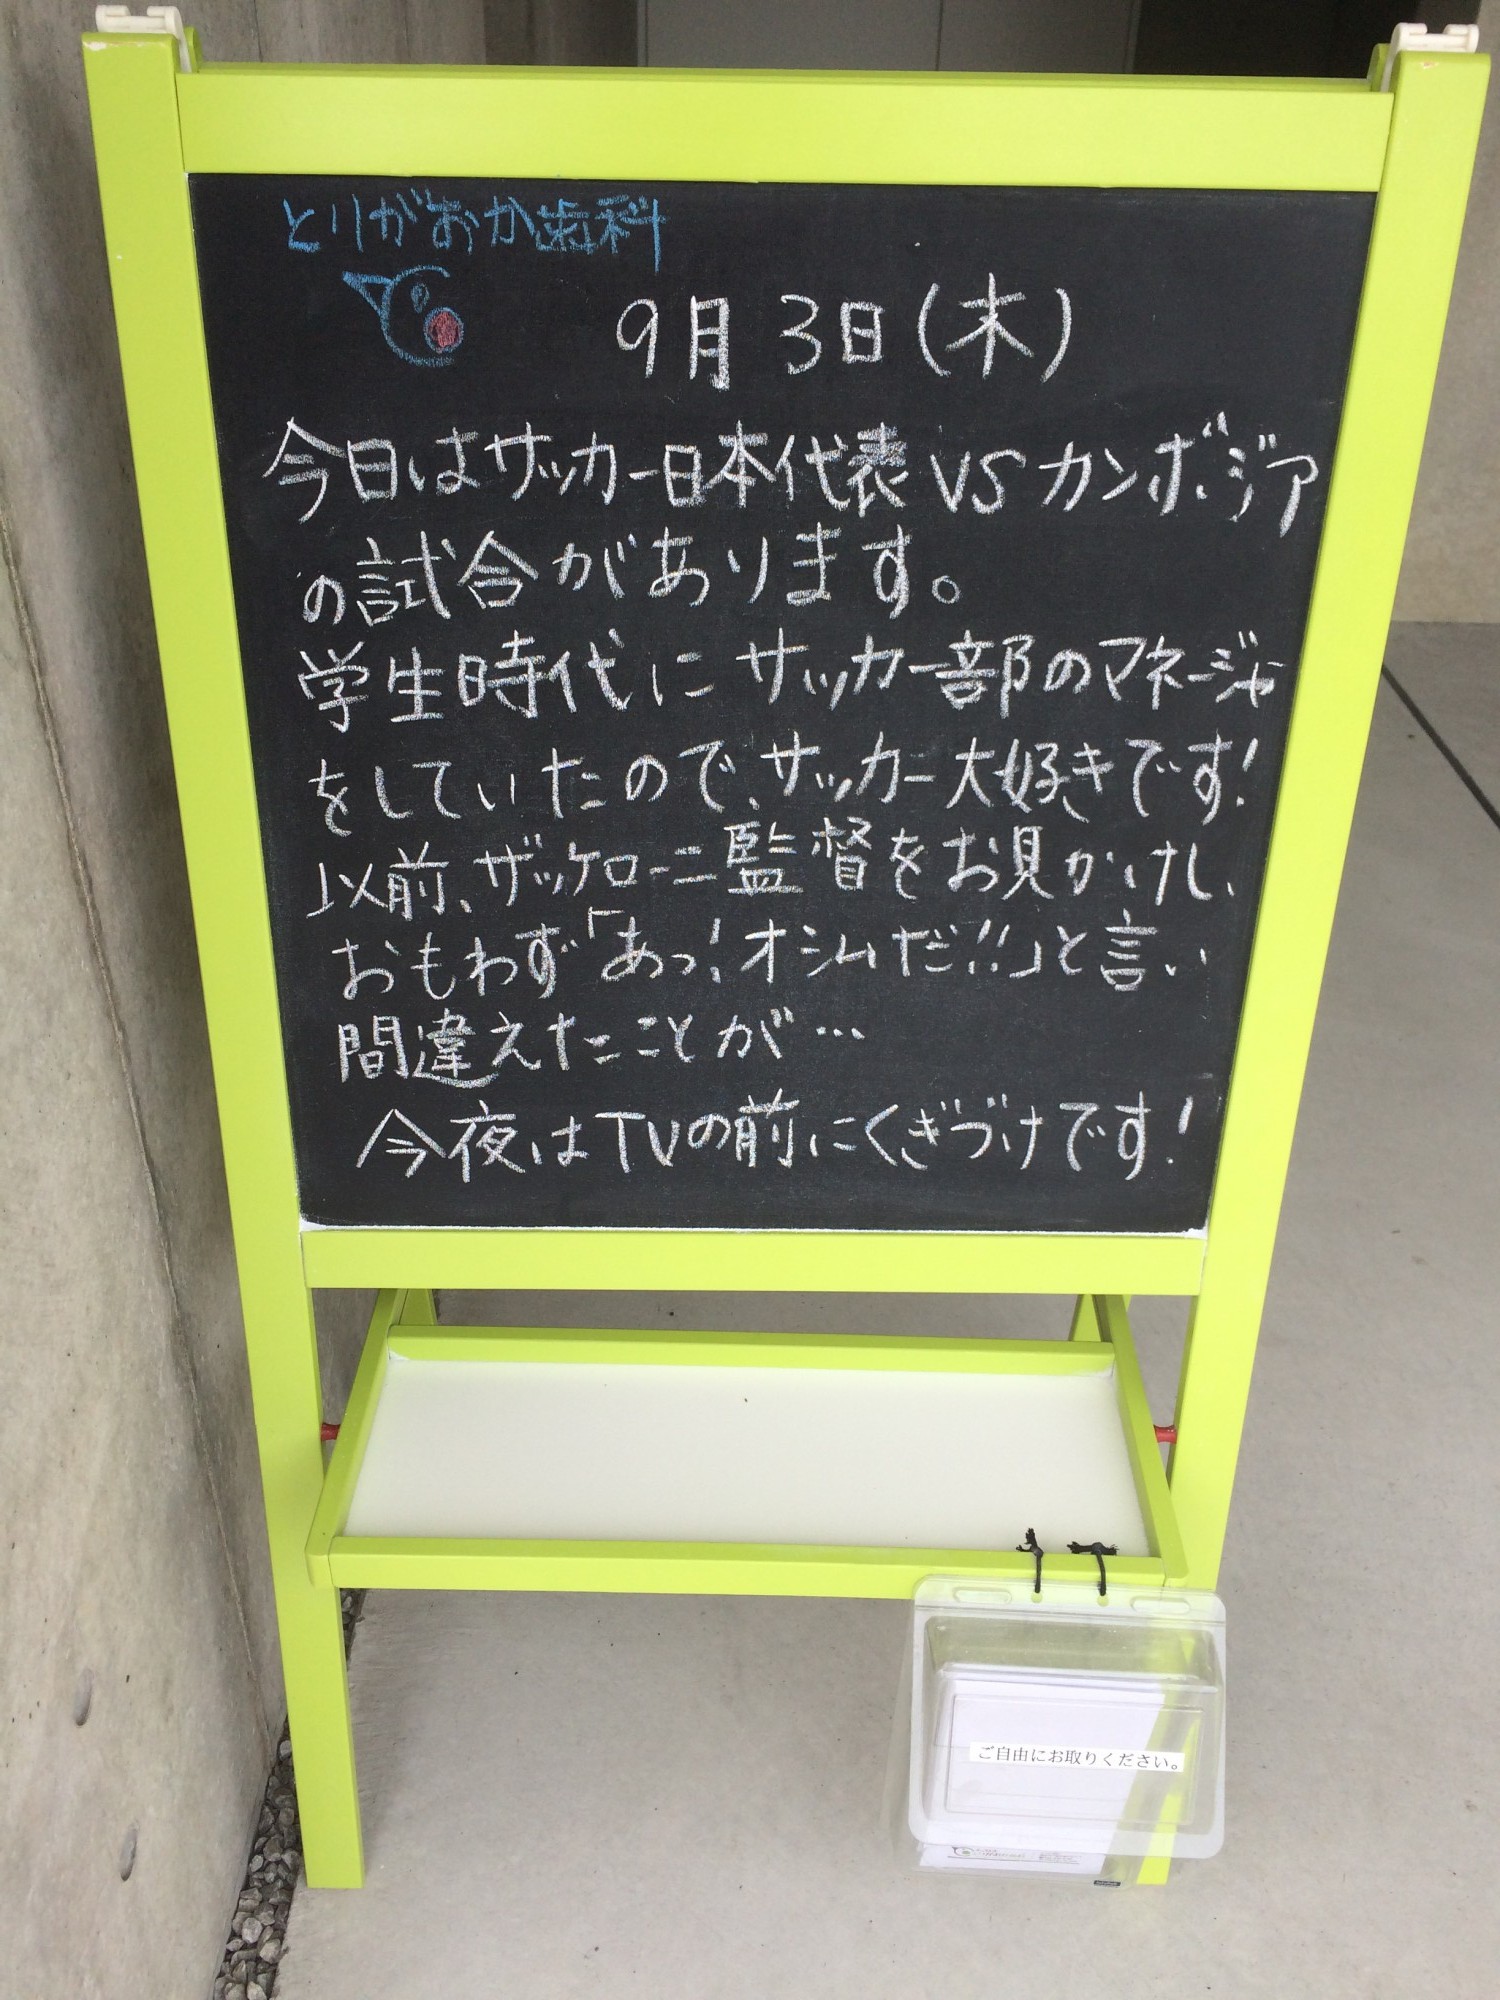 とりがおか歯科
9月3日(木)
今日はサッカー日本代表 VS カンボジア
の試合があります。
学生時代にサッカー部のマネージャー
をしていたので、サッカー大好きです!
以前、ザッケローニ監督をお見かけし、
おもわず「あっ!オシムだ!!」と言い
間違えたことが…
今夜はTVの前にくぎづけです!
ご自由にお取りください。